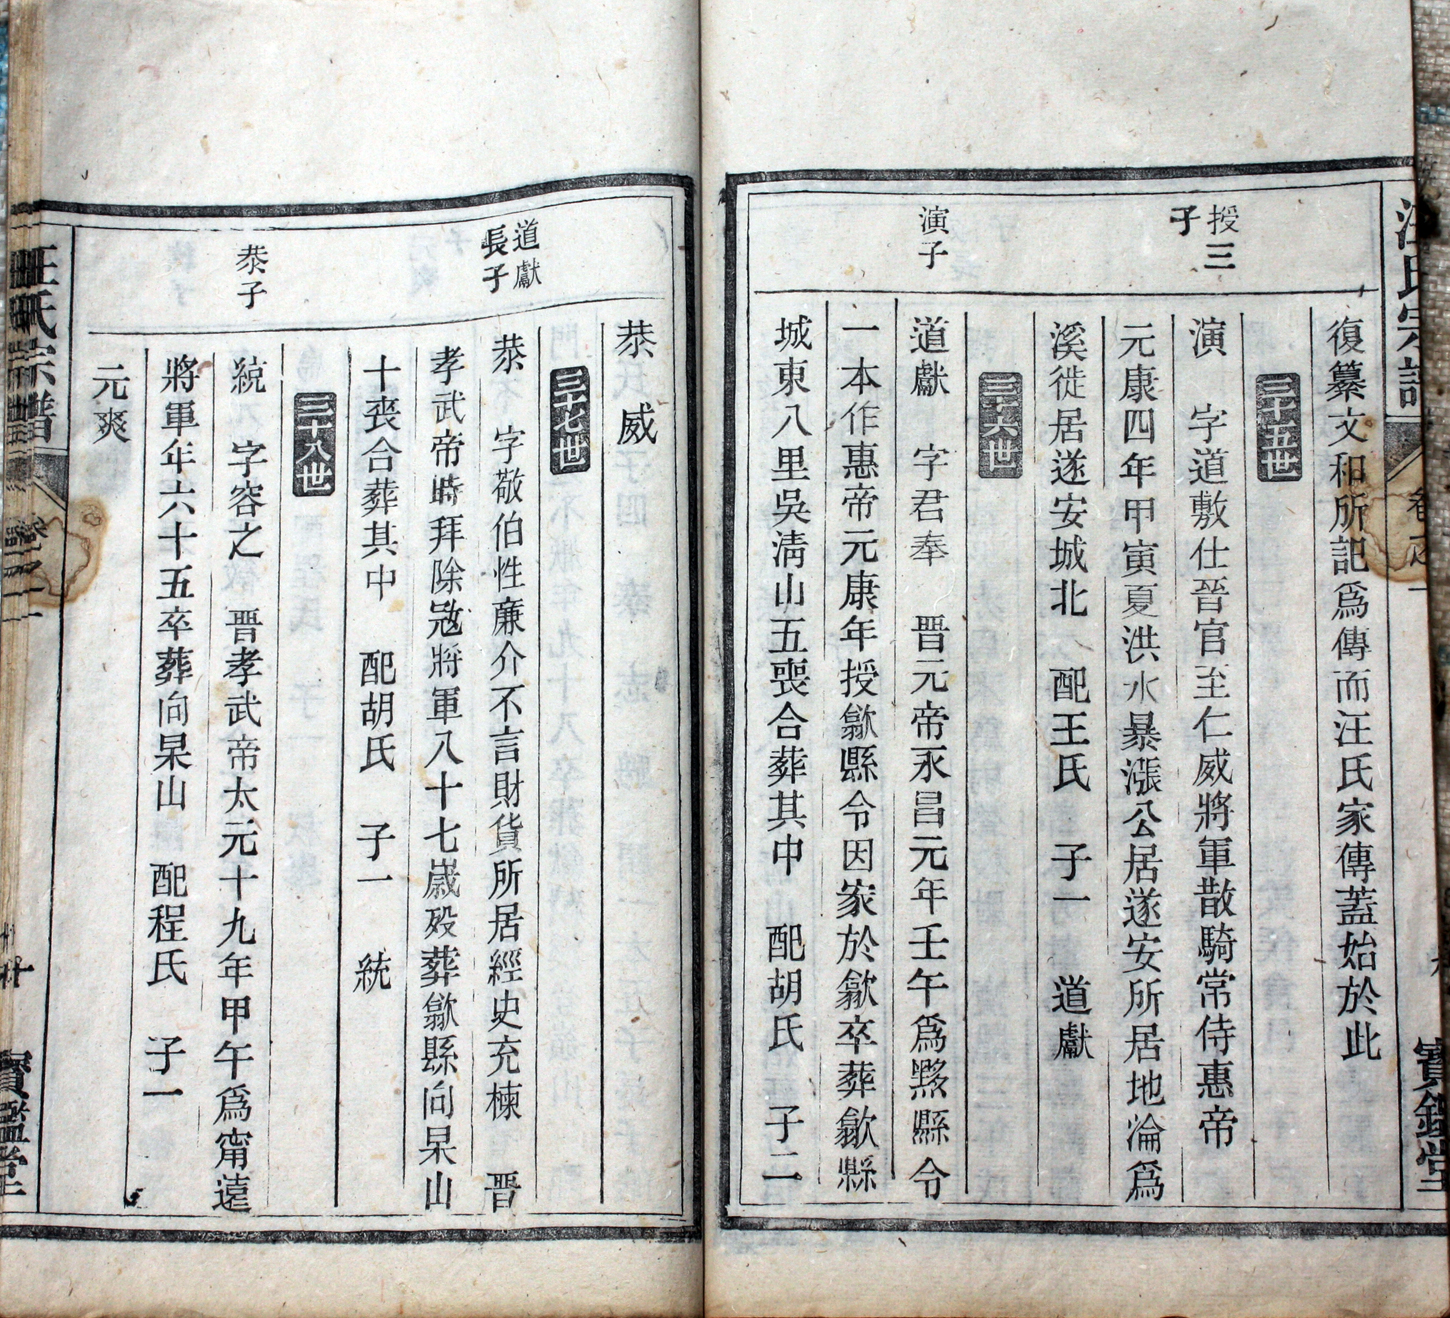 汪氏宗譜 卷之一 寶鑑堂
復纂文和所記爲傳而汪氏家傳蓋始於此
三十五世
授三
子
演 字道敷仕晉官至仁威將軍散騎常侍惠帝
元康四年甲寅夏洪水暴漲公居遂安所居地淪爲
溪徙居遂安城北 配王氏 子一 道獻
三十六世
演子
道獻 字君奉 晉元帝永昌元年壬午爲黟縣令
一本作惠帝元康年授歙縣令因家於歙卒葬歙縣
城東八里吳清山五喪合葬其中 配胡氏 子二
恭 威
三十七世
道獻
長子
恭 字敬伯性廉介不言財貨所居經史充棟 晉
孝武帝時拜除寇將軍八十七歲殁葬歙縣向杲山
十喪合葬其中 配胡氏 子一 統
三十八世
恭子
統 字容之 晉孝武帝太元十九年甲午爲甯遠
將軍年六十五卒葬向杲山 配程氏 子一
元爽
汪氏宗譜 寶鑑堂